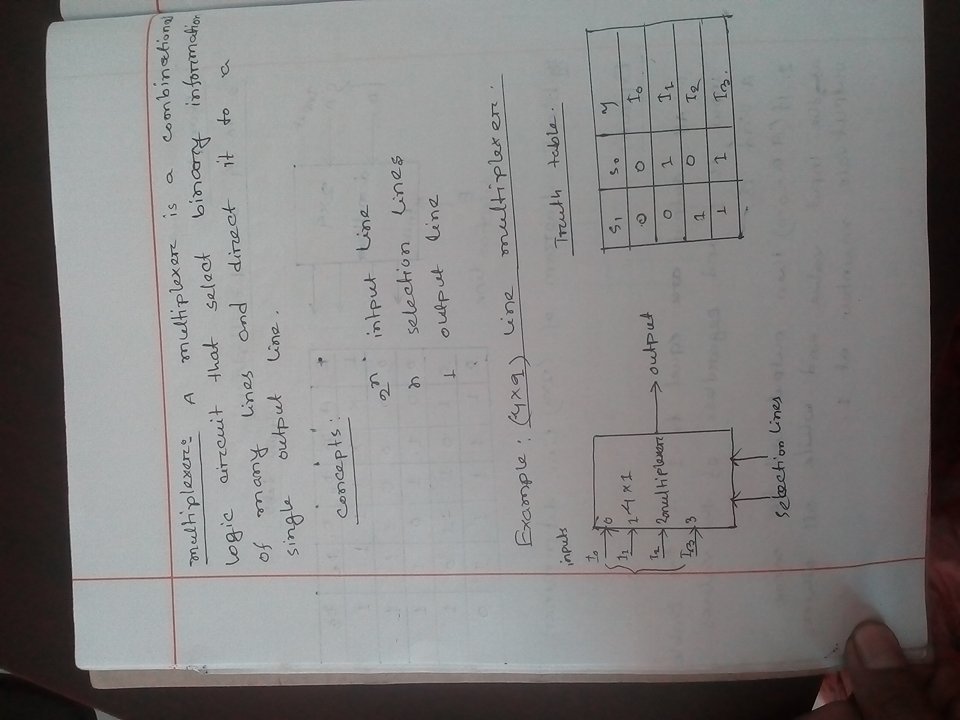 multiplexer: A multiplexer is a combinational
logic circuit that select binary information
of many lines and direct it to a
single output line.
Concepts:
2^n intput line
n selection lines
1 output line
Example: (4×9) line multiplexer.
inputs
I0 0
I1 1
I2 2
I3 3
4×1
multiplexer
output
selection lines
Truth table.
S1 S0 y
0 0 I0
0 1 I1
1 0 I2
1 1 I3.